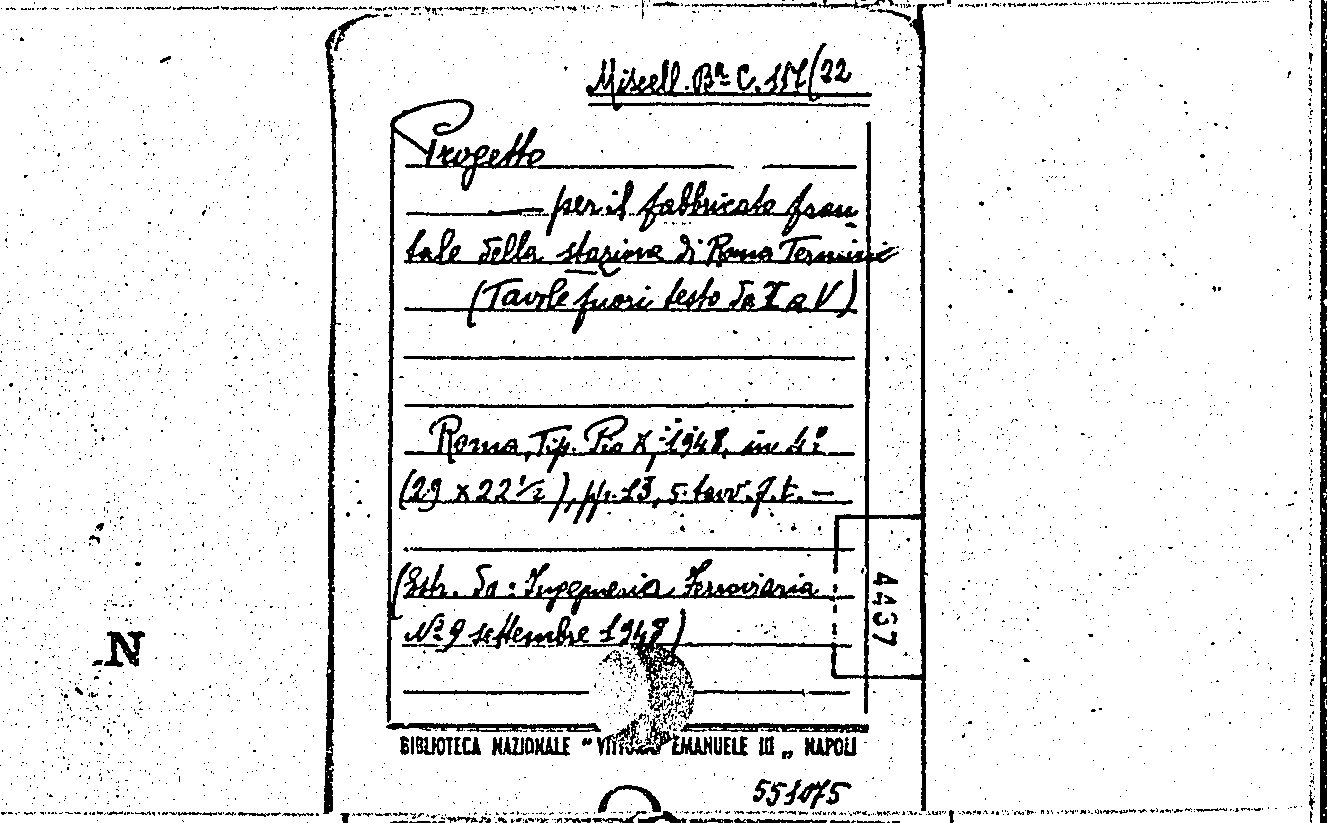 Miscell. Bª C. 157/22
Progetto
— per il fabbricato fron
tale della stazione di Roma Termini
(Tavole fuori testo da I a V)
Roma, Tip. Pio X, 1948, in 4º
(29 x 22 ½), pp. 13, 5 tavv. f. t. —
(Estr. da: Ingegneria Ferroviaria
Nº 9 settembre 1948)
4437
N
BIBLIOTECA NAZIONALE "VITTORIO EMANUELE III„ NAPOLI
551075